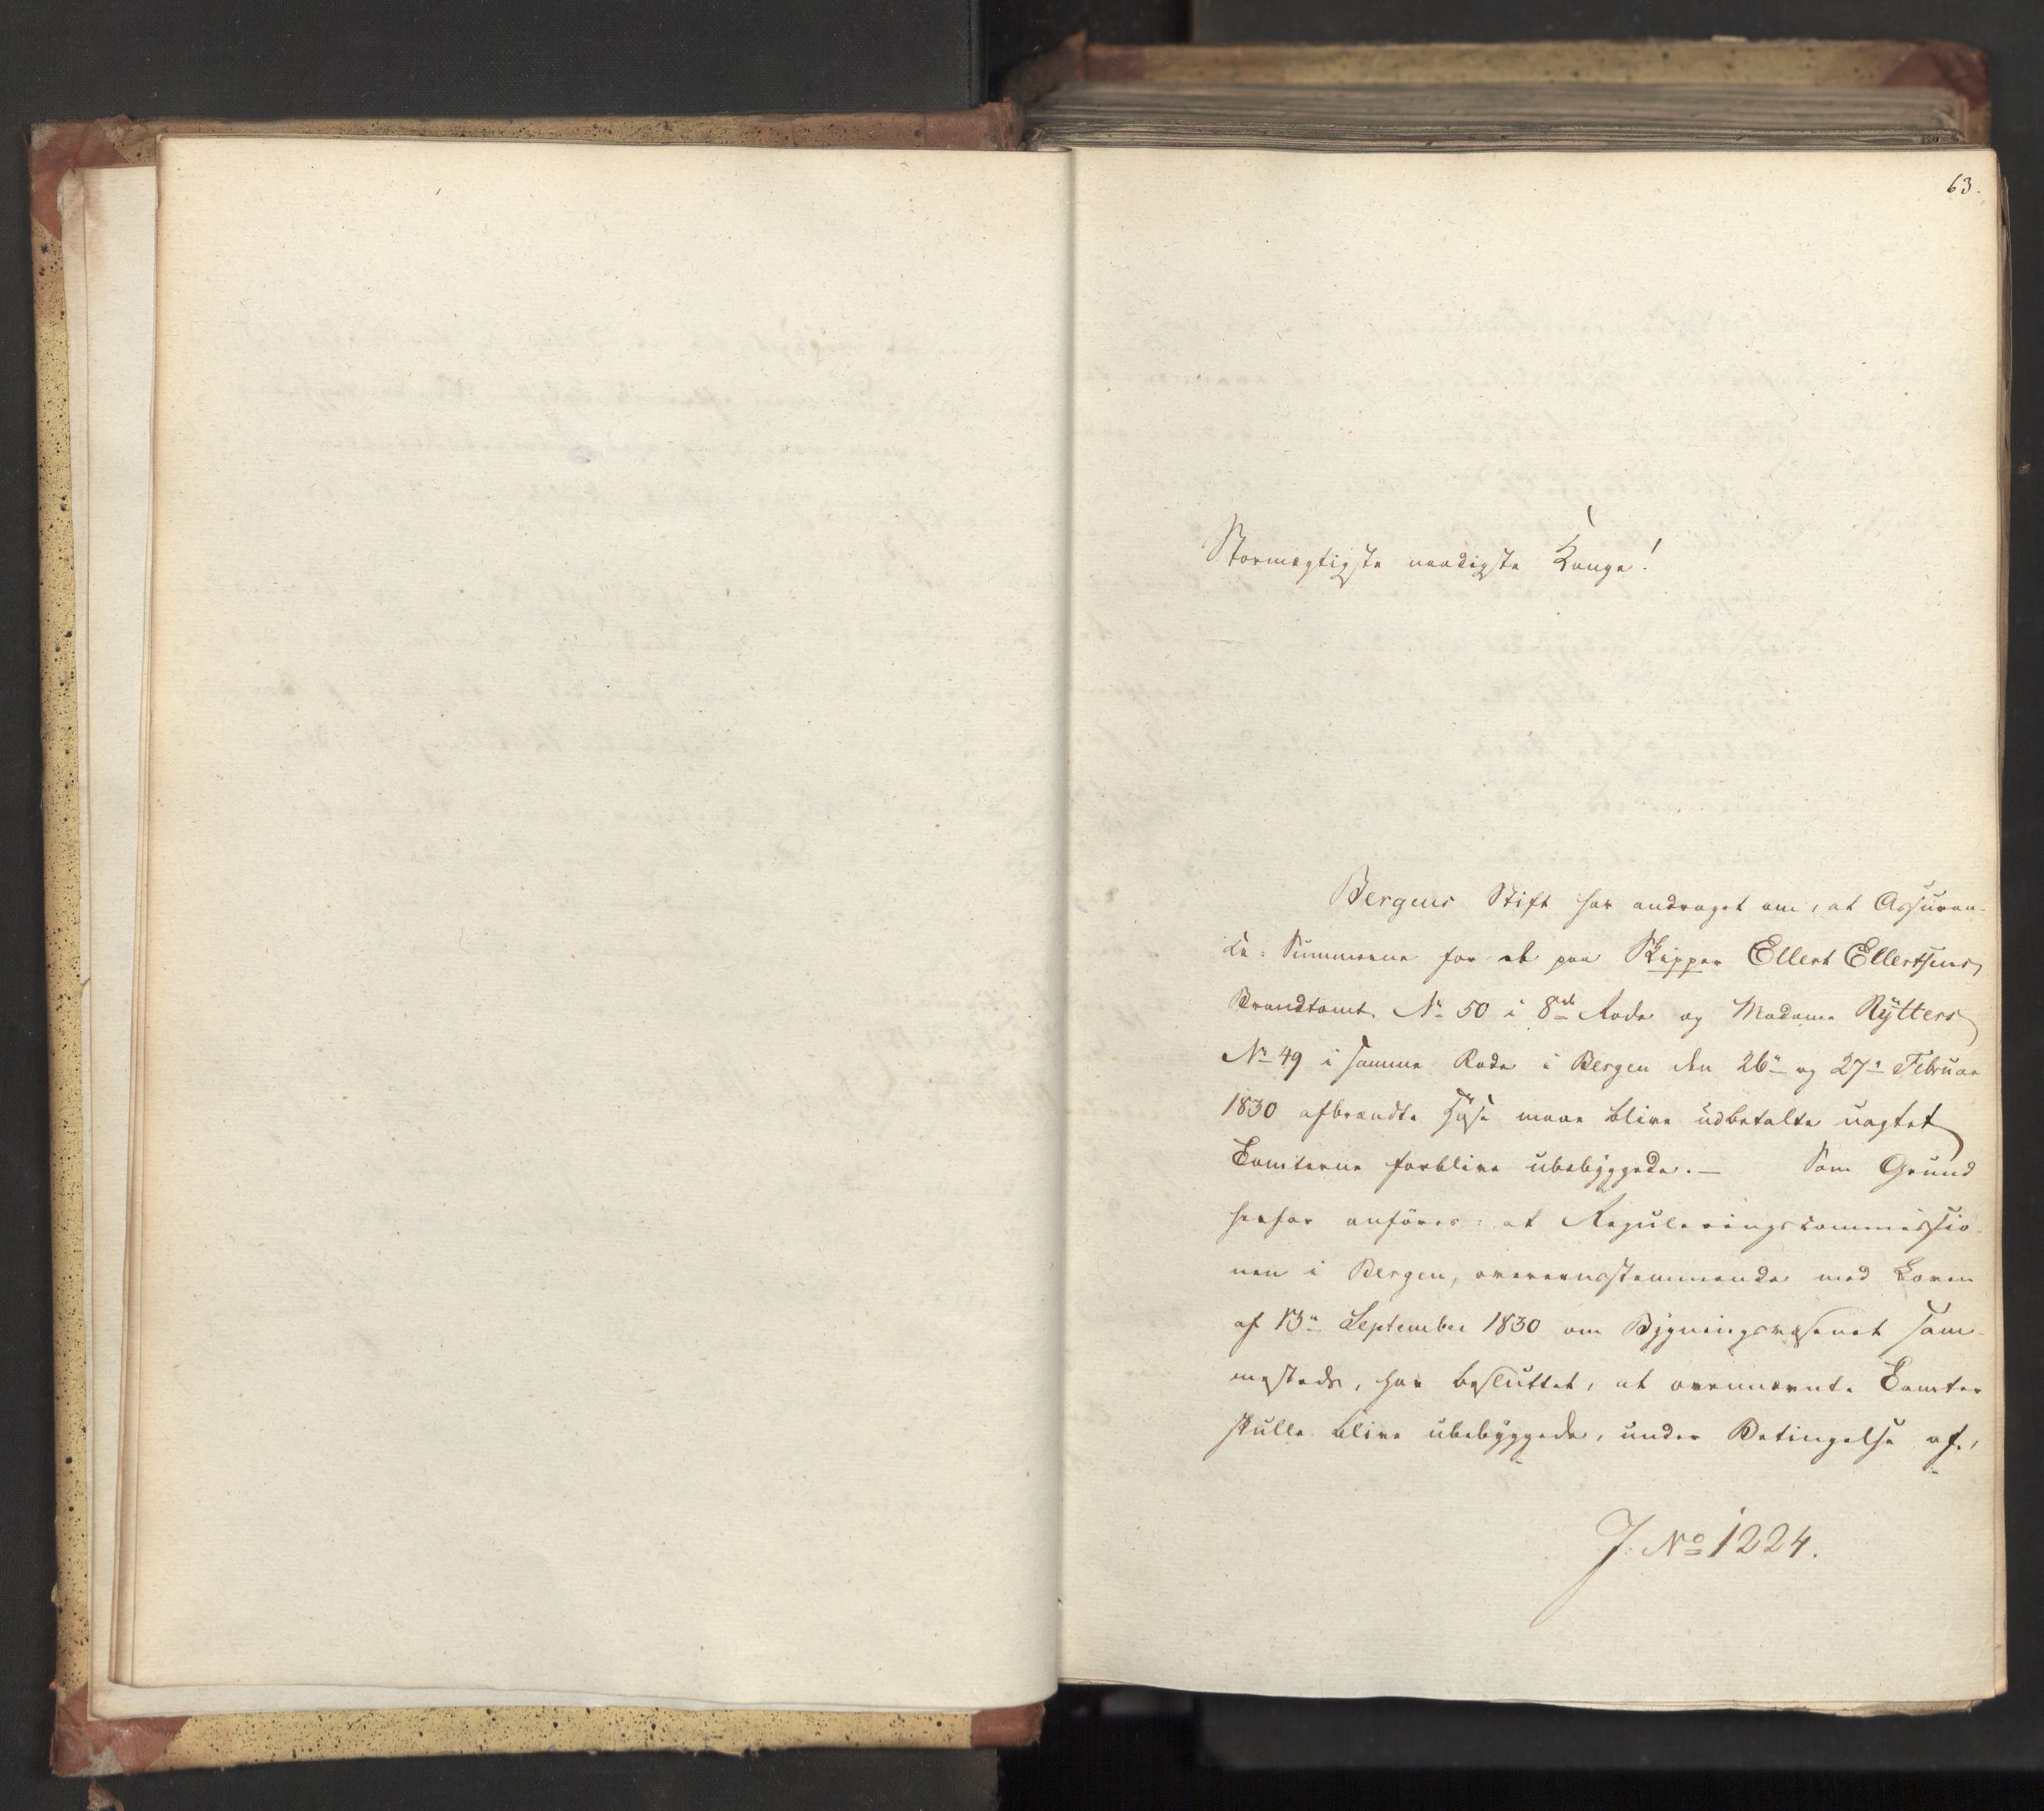 63.
Stormægtigste naadigste Konge!
Bergens Stift har andraget om, at Assuran-
ce-Summerne for et paa Skipper Ellert Ellertsens
Brandtomt No 50 i 8de Rode og Madame Rÿtters
No 49 i samme Rode i Bergen den 26n og 27n Februar
1830 afbrændte Huse maae blive udbetalte uagtet
Tomterne forblive ubebyggede. — Som Grund
herfor anföres: at Reguleringscommissio-
nen i Bergen, overeensstemmende med Loven
af 13n September 1830 om Bygningsvæsenet sam-
mesteds, har besluttet, at ovennævnte Tomter
skulle blive ubebyggede, under Betingelse af,
J. No 1224.